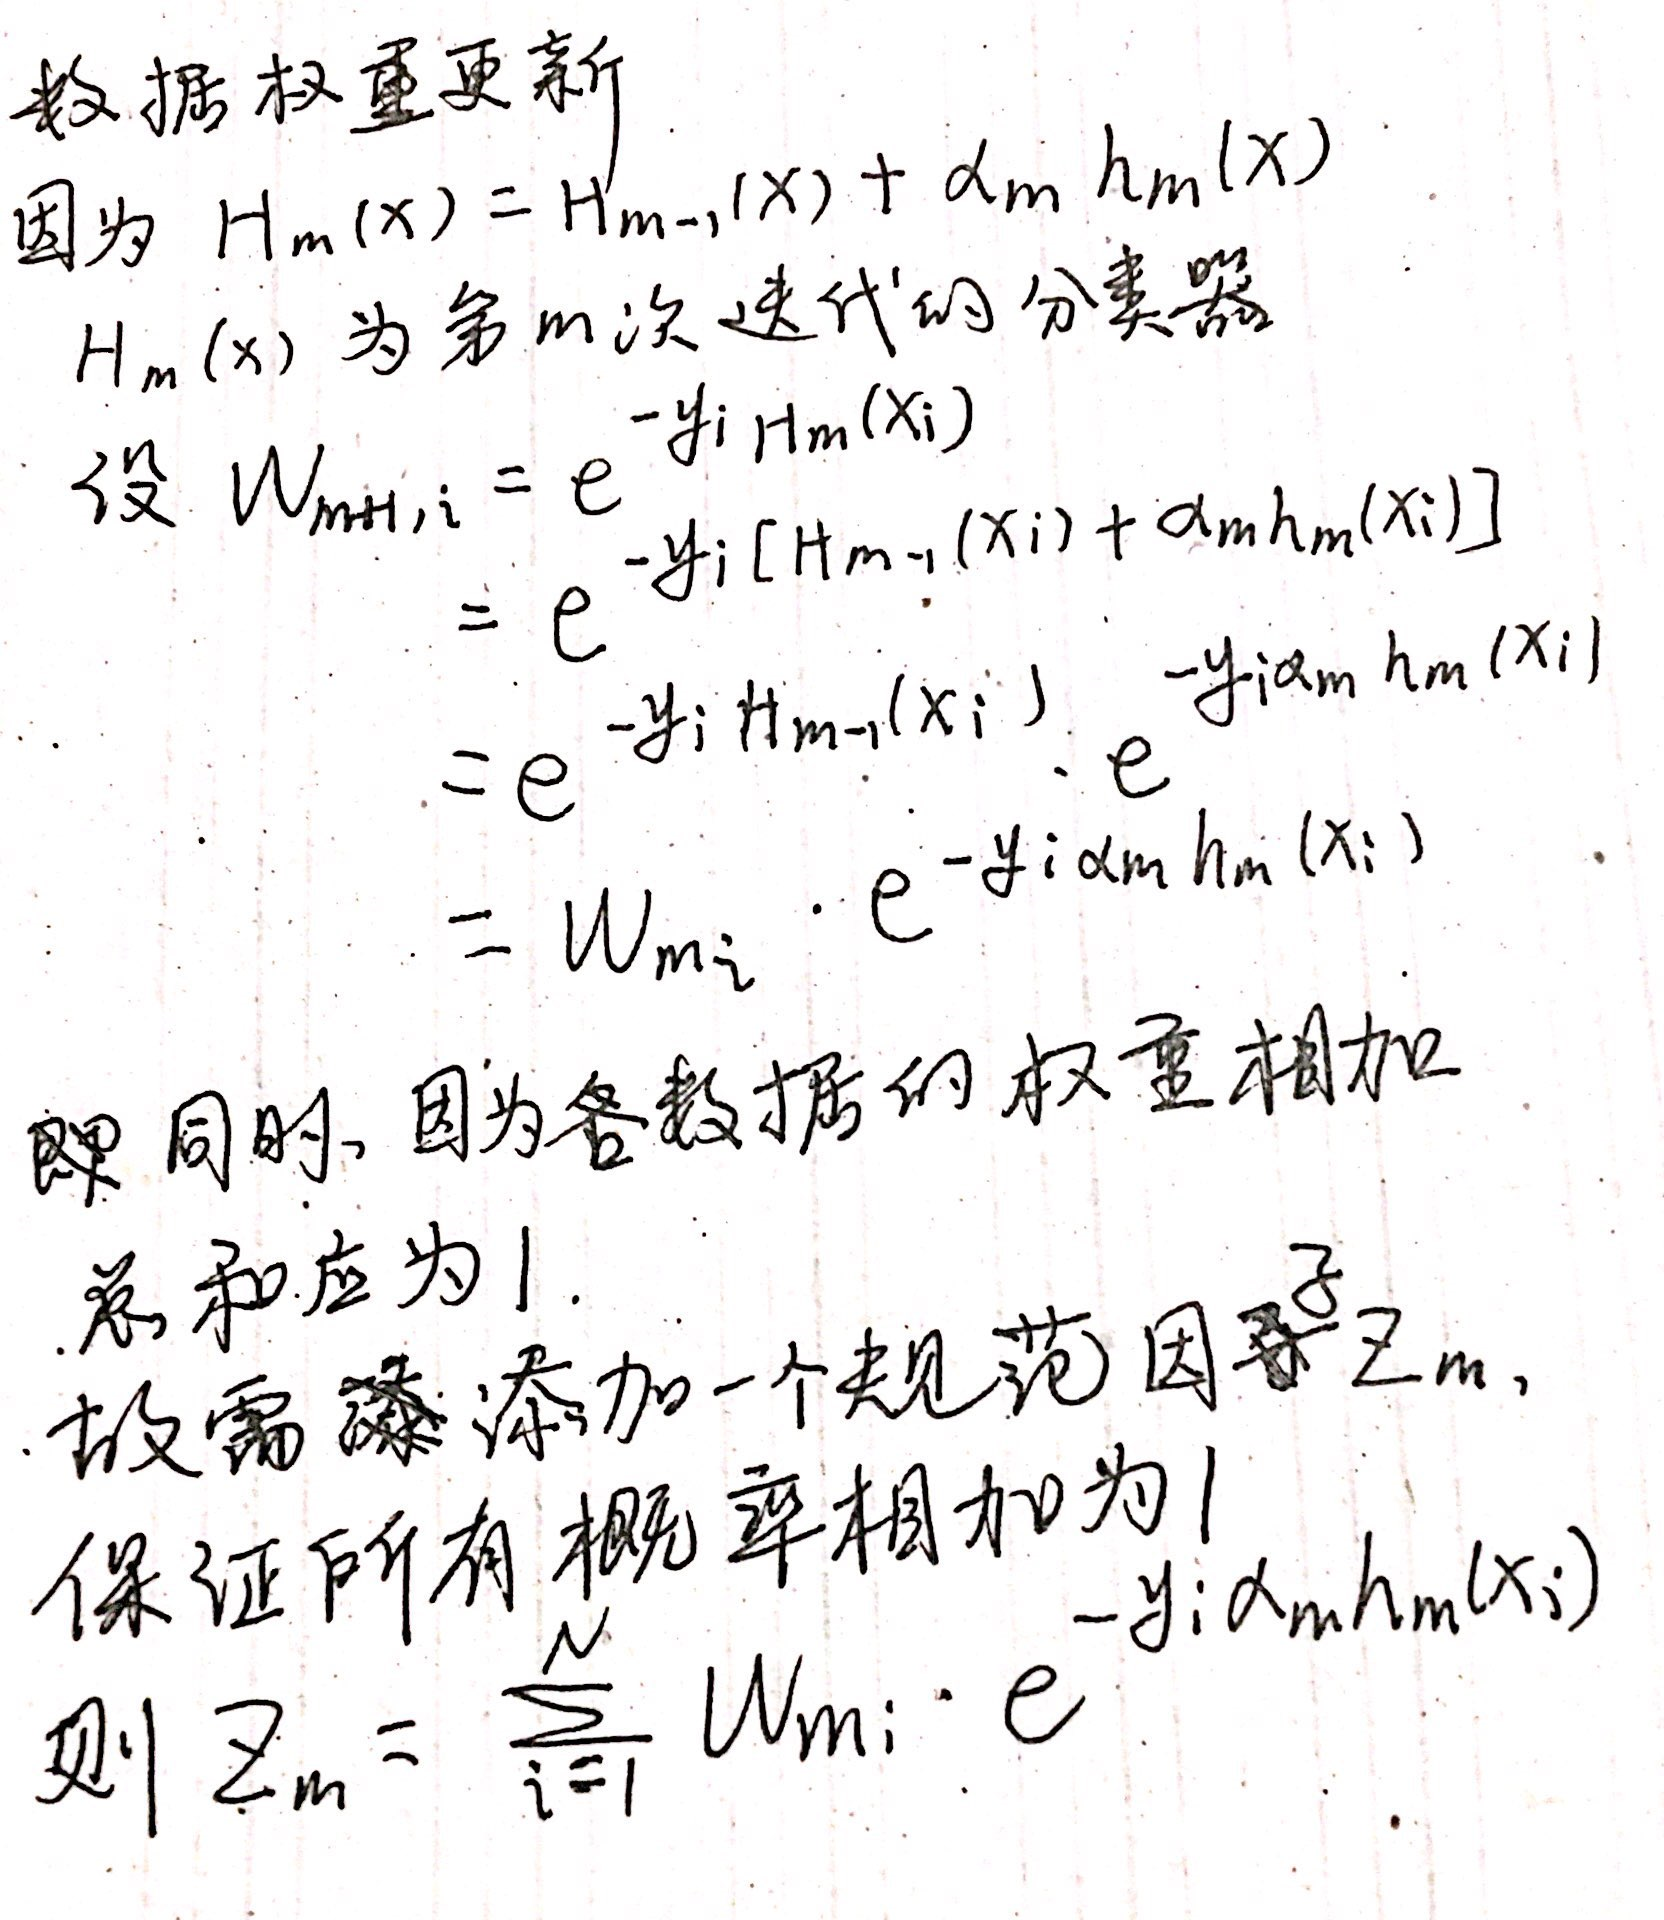 数据权重更新
因为 Hm(x) = Hm-1(x) + αm hm(x)
Hm(x) 为第m次迭代的分类器
设 Wm+1,i = e^{-yi Hm(xi)}
= e^{-yi[Hm-1(xi) + αmhm(xi)]}
= e^{-yi Hm-1(xi)} · e^{-yiαm hm(xi)}
= Wmi · e^{-yiαm hm(xi)}
同时、因为各数据的权重相加
总和应为1.
故需添加一个规范因子Zm,
保证所有概率相加为1
则 Zm = \sum_{i=1}^{N} Wmi · e^{-yiαmhm(xi)}